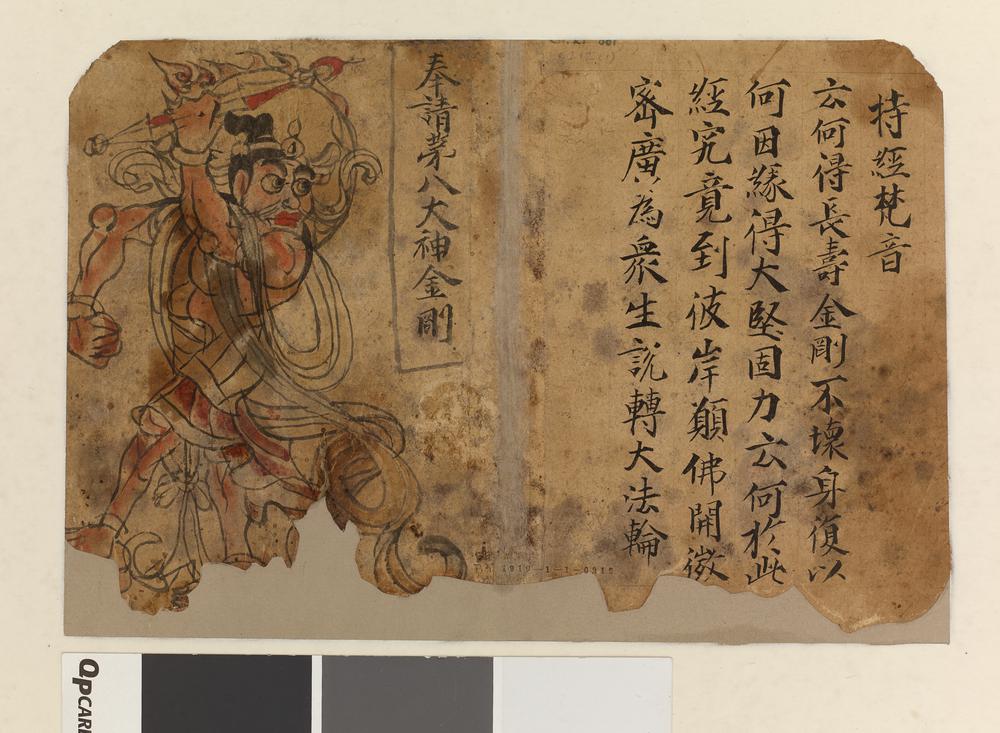 持經梵音
云何得長壽金剛不壞身復以
何因緣得大堅固力云何扵此
經究竟到彼岸願佛開微
密廣為衆生說轉大法輪
奉請苐八大神金剛
1919-1-1-0
QPCARD